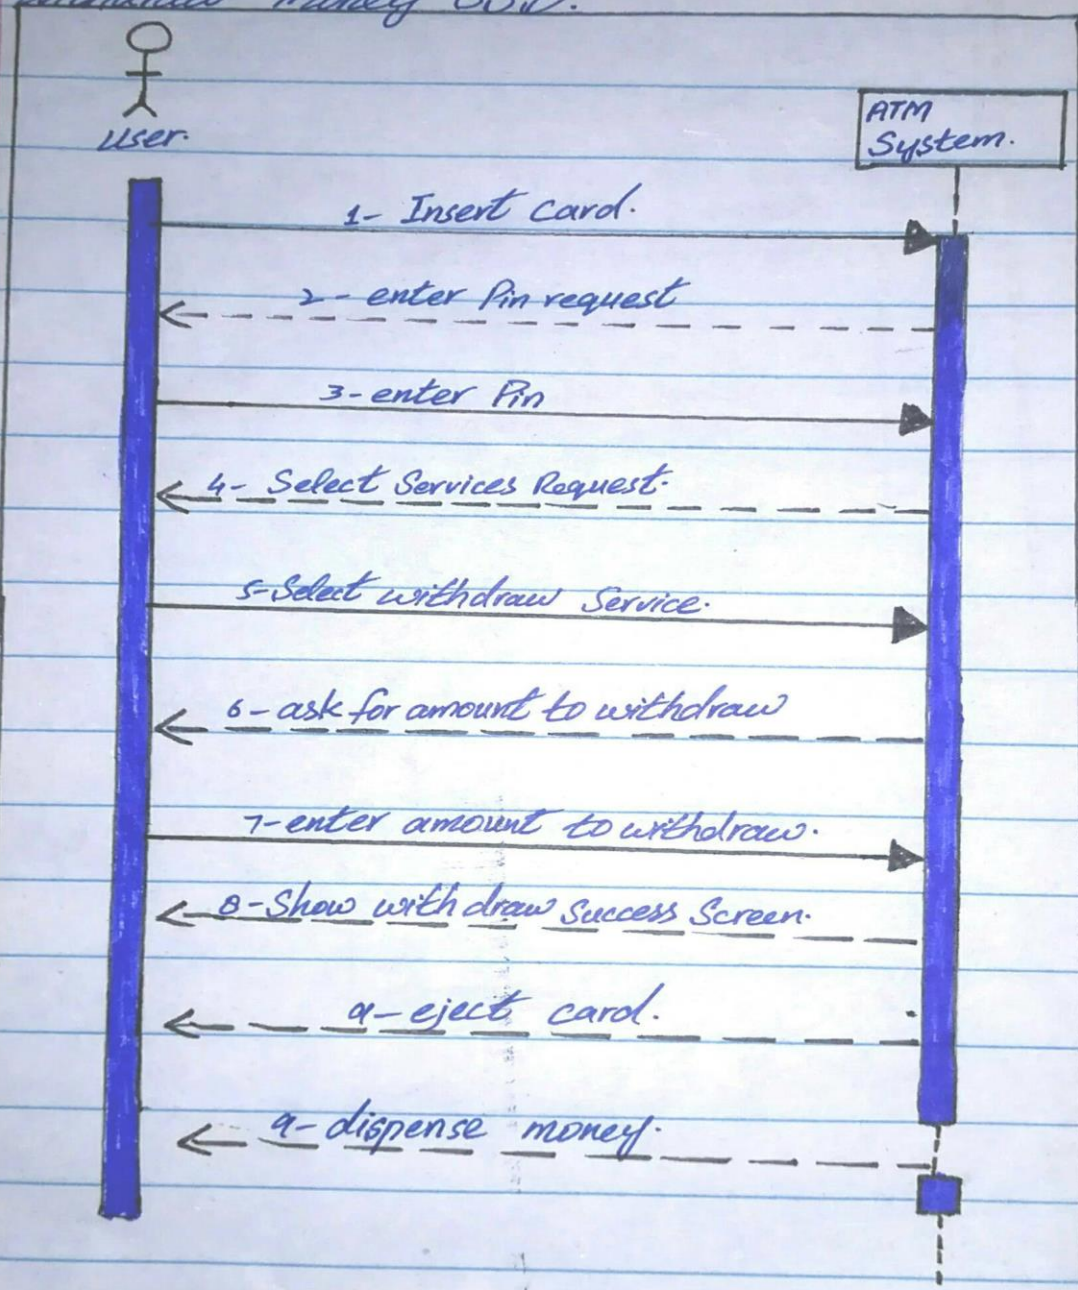 money SSD.
User.
ATM
System.
1- Insert Card.
2- enter Pin request
3- enter Pin
4- Select Services Request.
5- Select withdraw Service.
6- ask for amount to withdraw
7- enter amount to withdraw.
8- Show withdraw Success Screen.
9- eject card.
9- dispense money.